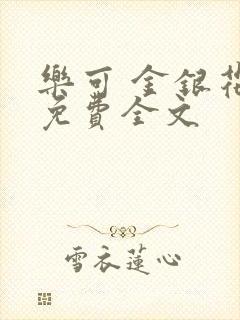 樂可 金銀花
免費全文
雪衣蓮心